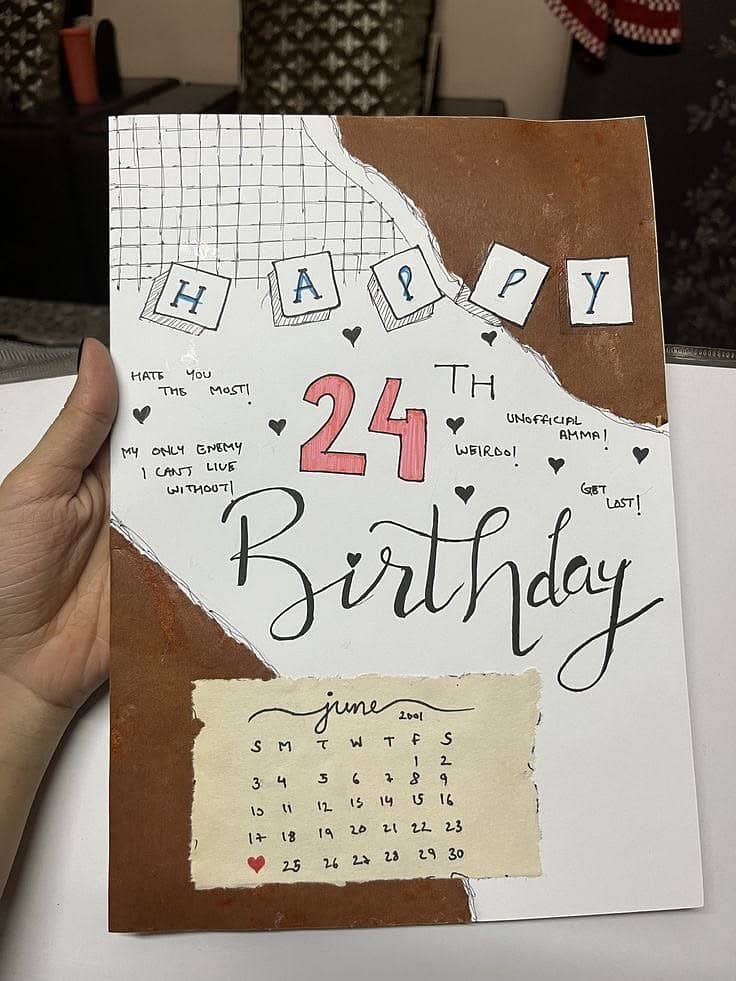 HAPPY
HATE YOU
THE MOST!
24TH
UNOFFICIAL
AMMA!
MY ONLY ENEMY
I CANT LIVE
WITHOUT!
WEIRDO!
GET
LOST!
Birthday
june 2001
S M T W T F S
1 2
3 4 5 6 7 8 9
10 11 12 13 14 15 16
17 18 19 20 21 22 23
25 26 27 28 29 30